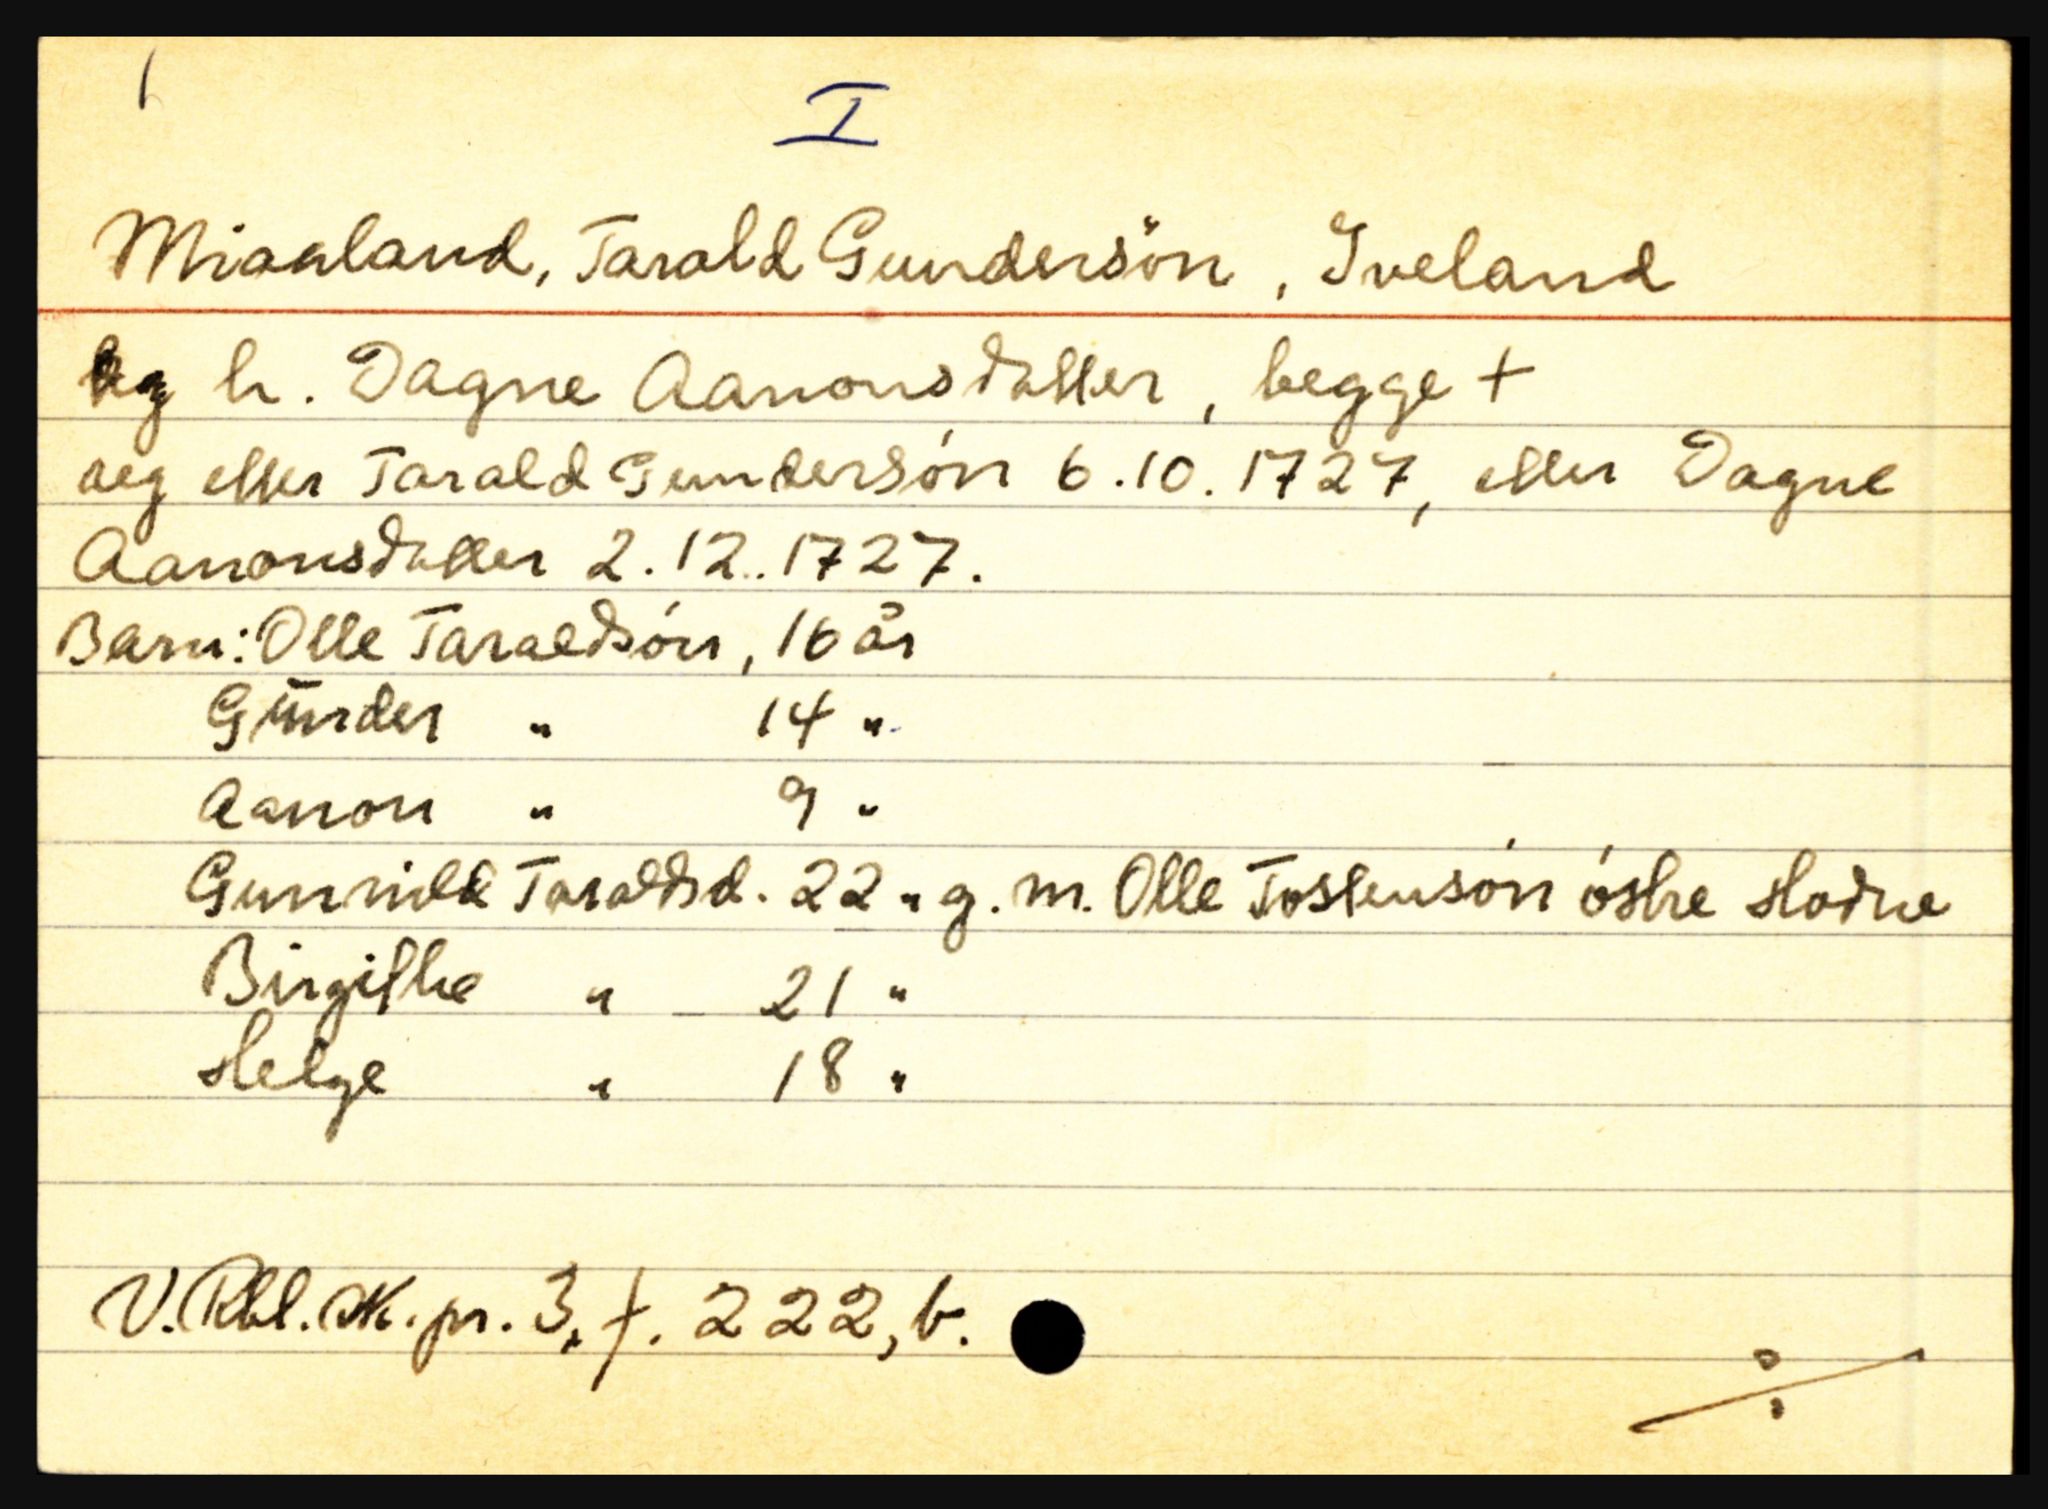 I
Miaaland, Tarald Gundersön, Iveland
og h. Dagne Aanonsdatter, begge +
reg etter Tarald Gundersón 6.10.1727, etter Dagne
Aanonsdatter 2.12.1727.
Barn: Olle Taraldsón, 16 år
Günder " 14 "
Aanon " 9 "
Gunnild Taraldsd. 22 " g. m. Olle Tostensón óstre Hodne
Birgithe " 21 "
Helge " 18 "
V. Rbl. sk. pr. 3, f. 222, b.